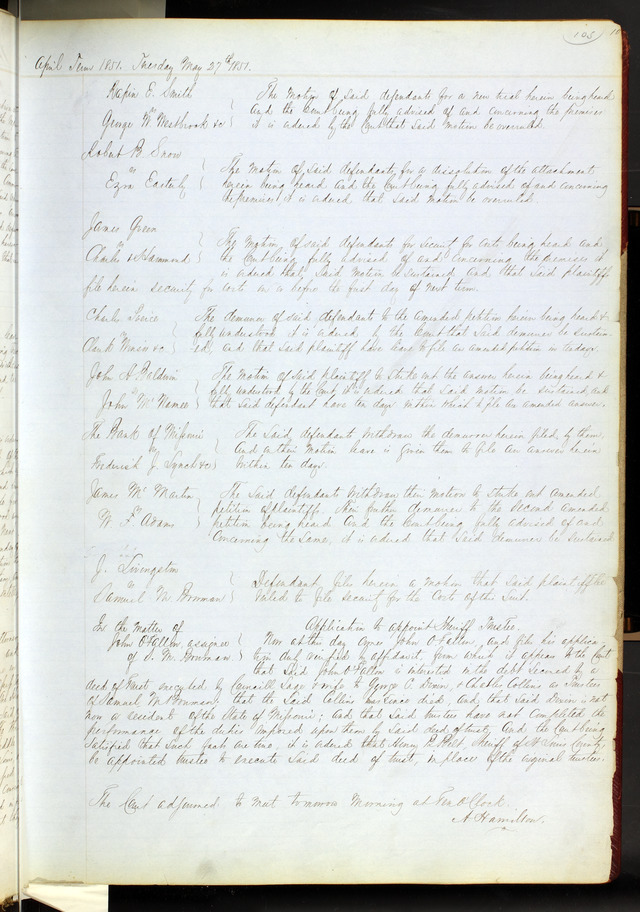 105
April Term 1851. Tuesday May 27th 1851.
Rufin E. Smith
vs
George W Westbrook &c
The motion of said defendants for a new trial herein being heard
and the Court being fully advised of and concerning the premises
it is ordered by the Court that said motion be overruled.
Robert B. Snow
vs
Ezra
The motion of said defendants for a dissolution of the attachment
herein being heard and the Court being fully advised of and concerning
the premises, it is ordered that said motion be overruled.
James Green
vs
Charles Hammond
The motion of said defendants for security for costs being heard and
the Court being fully advised of and concerning the premises it
is ordered that said motion be sustained and that said plaintiff
file herein security for costs on or before the first day of next term.
Charles
vs
Clark &c
The demurrer of said defendant to the amended petition herein being heard &
fully understood it is ordered by the Court that said demurrer be sustain
ed, and that said plaintiff have leave to file an amended petition in ten days.
John A. Baldwin
vs
John McNamee
The motion of said plaintiff to strike out the answer herein being heard &
fully understood by the Court it is ordered that said motion be sustained, and
that said defendant have ten days within which to file an amended answer.
The Bank of Missouri
vs
Frederick J. Lynch &c
The said defendants withdraw the demurrer herein filed by them
and on their motion leave is given them to file an answer herein
within ten days.
James McMartin
vs
W. F. Adams
The said defendant withdraws his motion to strike out amended
petition of plaintiff, then further demurrer to the second amended
petition being heard and the Court being fully advised of and
concerning the same, it is ordered that said demurrer be sustained
J. Livingston
vs
Samuel M Bowman
Defendant files herein a motion that said plaintiff be
ruled to file security for the costs of the suit.
In the matter of
John O'Fallon, assignee
of S. M. Bowman
Application to appoint Sheriff Trustee.
Now at this day comes John O'Fallon, and files his applica-
tion duly verified by affidavit, from which it appears to the Court
that said John O'Fallon is interested in the debt secured by a
deed of trust executed by Sage & wife to George C. & Charles Collins as Trustees
of Samuel M Bowman: that the said Collins has since died, and that said is not
now a resident of the State of Missouri; and that said trustees have not completed the
performance of the duties imposed upon them by said deed of trust; and the Court being
satisfied that such facts are true, it is ordered that Sheriff of St Louis County
be appointed trustee to execute said deed of trust, in place of the original trustees.
The Court adjourned to meet tomorrow morning at Ten O Clock
A. Hamilton.